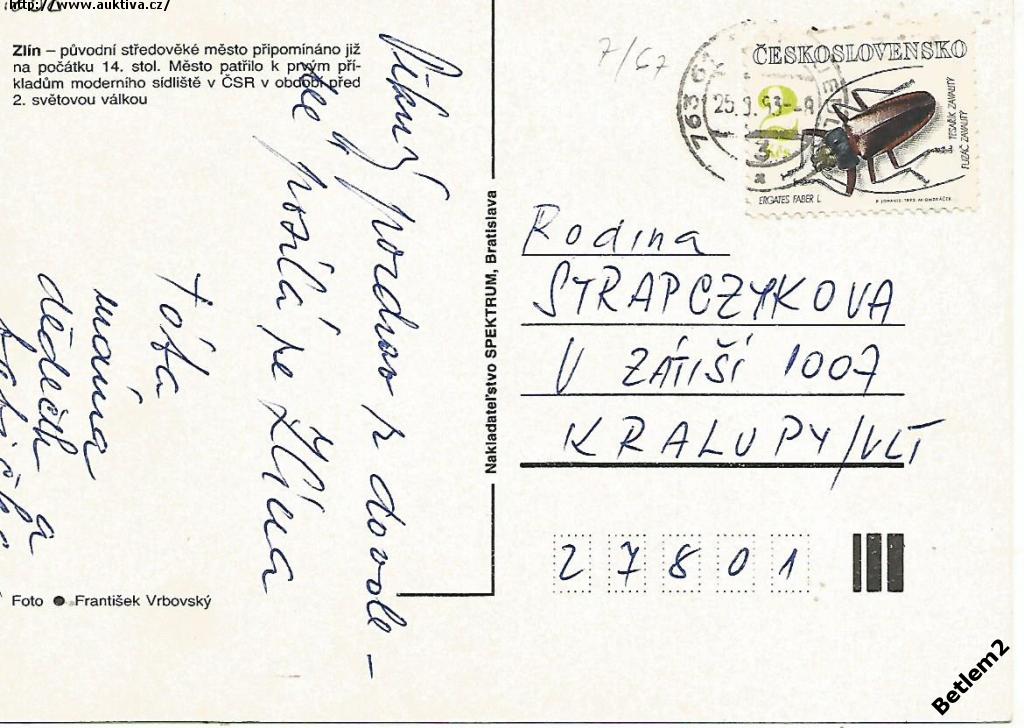 http://www.auktiva.cz/
Zlín – původní středověké město připomínáno již
na počátku 14. stol. Město patřilo k prvým pří-
kladům moderního sídliště v ČSR v období před
2. světovou válkou
pozdrav z dovole-
posílá ze Zlína
Tóťa
máma
dědeček a
babička
Foto ● František Vrbovský
Nakladateľstvo SPEKTRUM, Bratislava
7/67
ČESKOSLOVENSKO
2
Kčs
TESAŘÍK ZAVALITÝ
FUZÁČ ZAVALITÝ
ERGATES FABER L.
763 6
25.9.93-9
3
Rodina
STRAPCZYKOVA
V ZÁTIŠÍ 1007
KRALUPY/VLT
27801
Betlem2